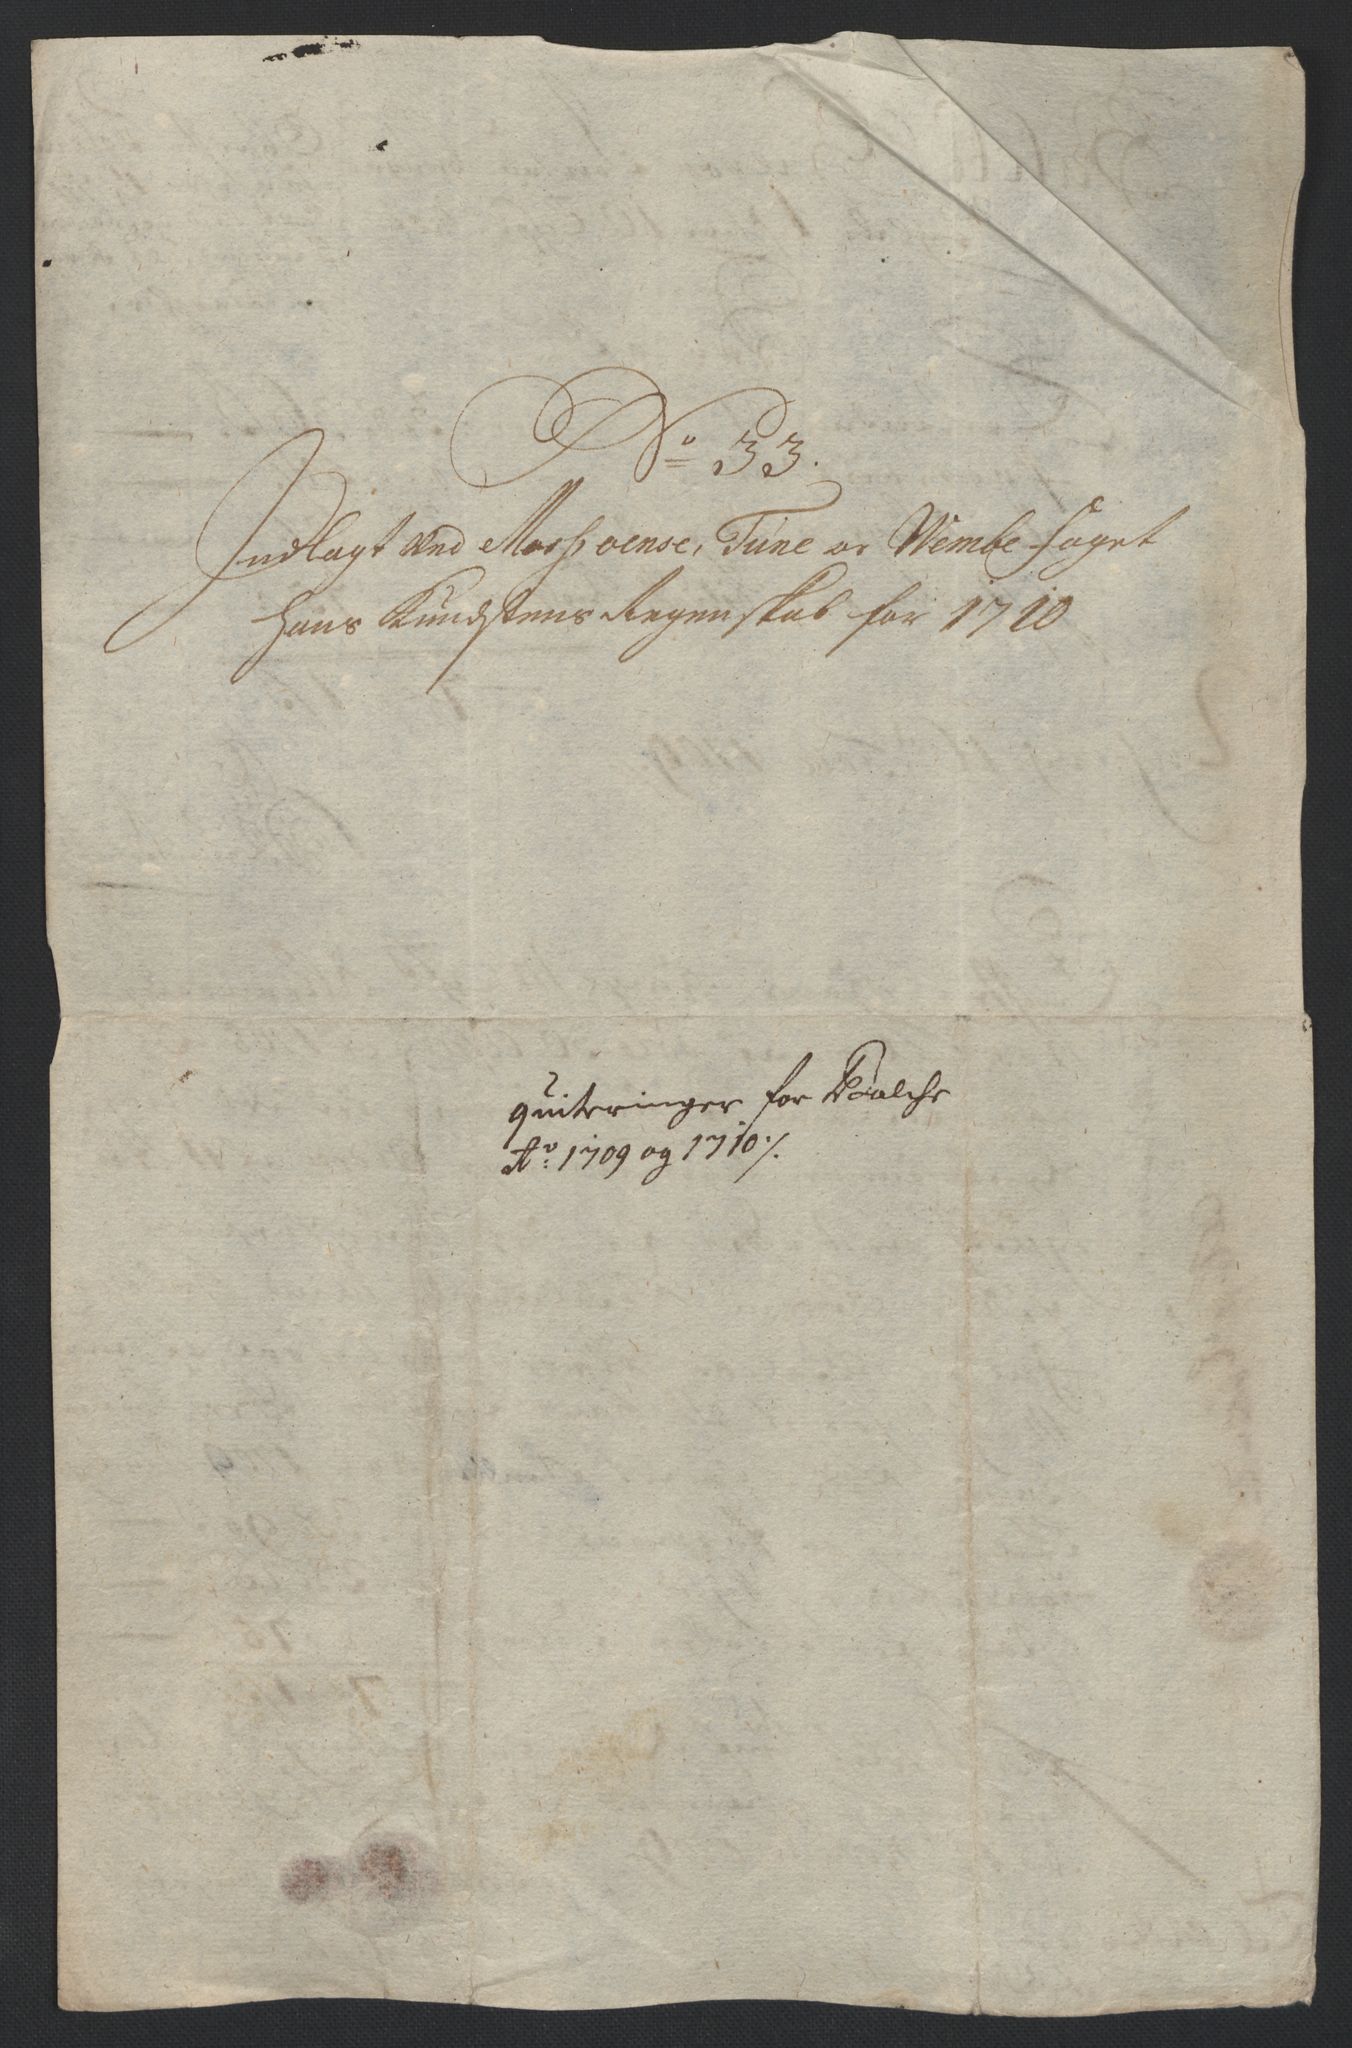 No 33.
Indlagt ved Moss, oense, Tune oc Wembe Fogct
Hans Kundstens Regenskab for 1710
quiteringer for
Ao: 1709 og 1710 ./.